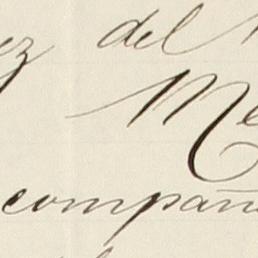 ez del
Me
compañ